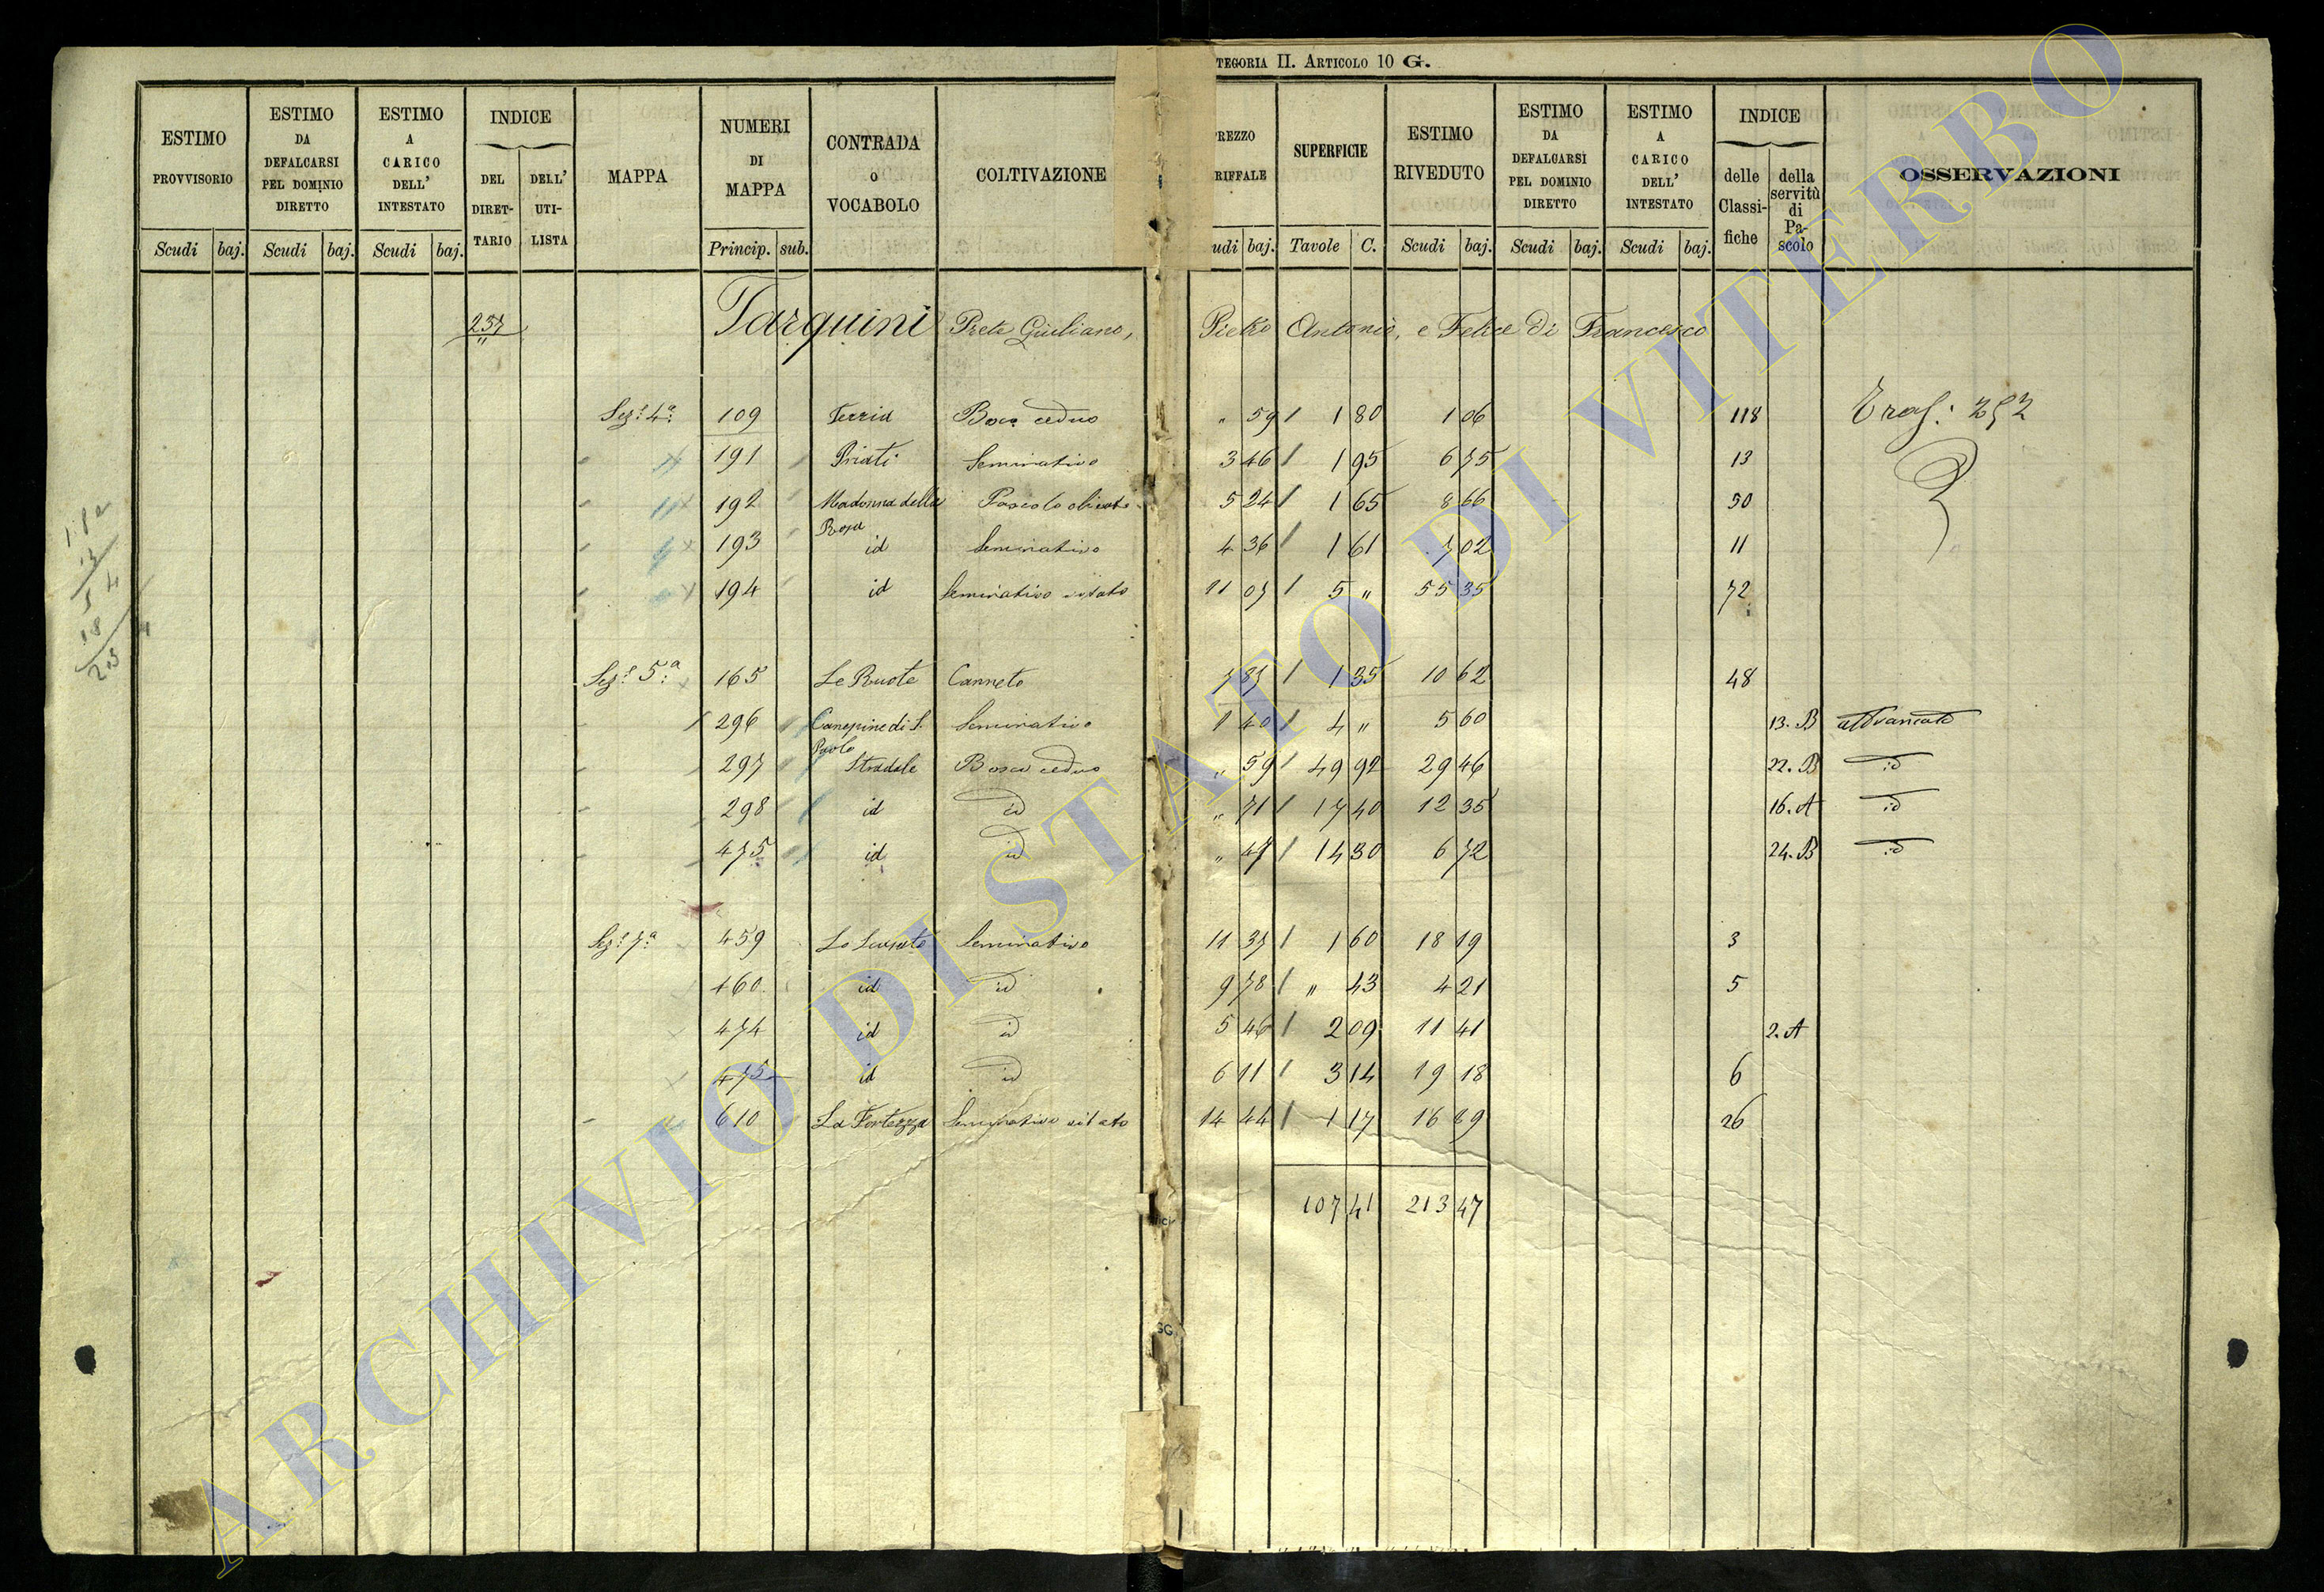 CATEGORIA II. ARTICOLO 10 G.
ESTIMO PROVVISORIO Scudi baj. ESTIMO DA DEFALCARSI PEL DOMINIO DIRETTO Scudi baj. ESTIMO A CARICO DELL' INTESTATO Scudi baj. INDICE DEL DIRETTARIO DELL' UTILISTA MAPPA NUMERI DI MAPPA Princip. sub. CONTRADA o VOCABOLO COLTIVAZIONE
PREZZO TARIFFALE Scudi baj. SUPERFICIE Tavole C. ESTIMO RIVEDUTO Scudi baj. ESTIMO DA DEFALCARSI PEL DOMINIO DIRETTO Scudi baj. ESTIMO A CARICO DELL' INTESTATO Scudi baj. INDICE delle Classifiche della servitù di Pascolo OSSERVAZIONI
237 Tarquini Prete Giuliano, Pietro Antonio, e Felice di Francesco
Sez.e 4.a 109 Ferria Bosco ceduo " 59 1 80 1 06 118 Tras.: 252
191 Prati Seminativo 3 46 1 95 6 75 13
192 Madonna della Rosa Pascolo olivato 5 24 1 65 8 66 50
193 id Seminativo 4 36 1 61 7 02 11
194 id Seminativo vitato 11 07 5 " 55 35 72
Sez.e 5.a 165 Le Ruote Canneto 7 87 1 35 10 62 48
296 Canepine di S. Paolo Seminativo 1 40 4 " 5 60 13. B affrancato
297 Stradale Bosco ceduo " 59 49 92 29 46 22. B id
298 id id " 71 17 40 12 35 16. A id
475 id id " 47 14 30 6 72 24. B id
Sez.e 7.a 459 Seminativo 11 37 1 60 18 19 3
460 id id 9 78 " 43 4 21 5
474 id id 5 46 2 09 11 41 2. A
475 id id 6 11 3 14 19 18 6
610 La Fortezza Seminativo vitato 14 44 1 17 16 89 26
107 41 213 47
ARCHIVIO DI STATO DI VITERBO